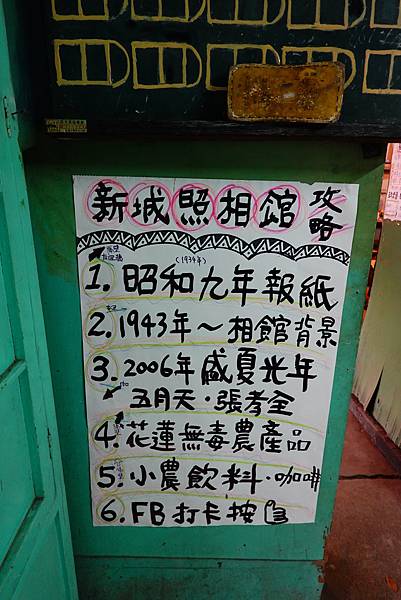 新城照相館 攻略
1. 昭和九年報紙
(1934年)
2. 1943年～相館背景
3. 2006年盛夏光年
五月天．張孝全
4. 花蓮無毒農產品
5. 小農飲料．咖啡
6. FB打卡按